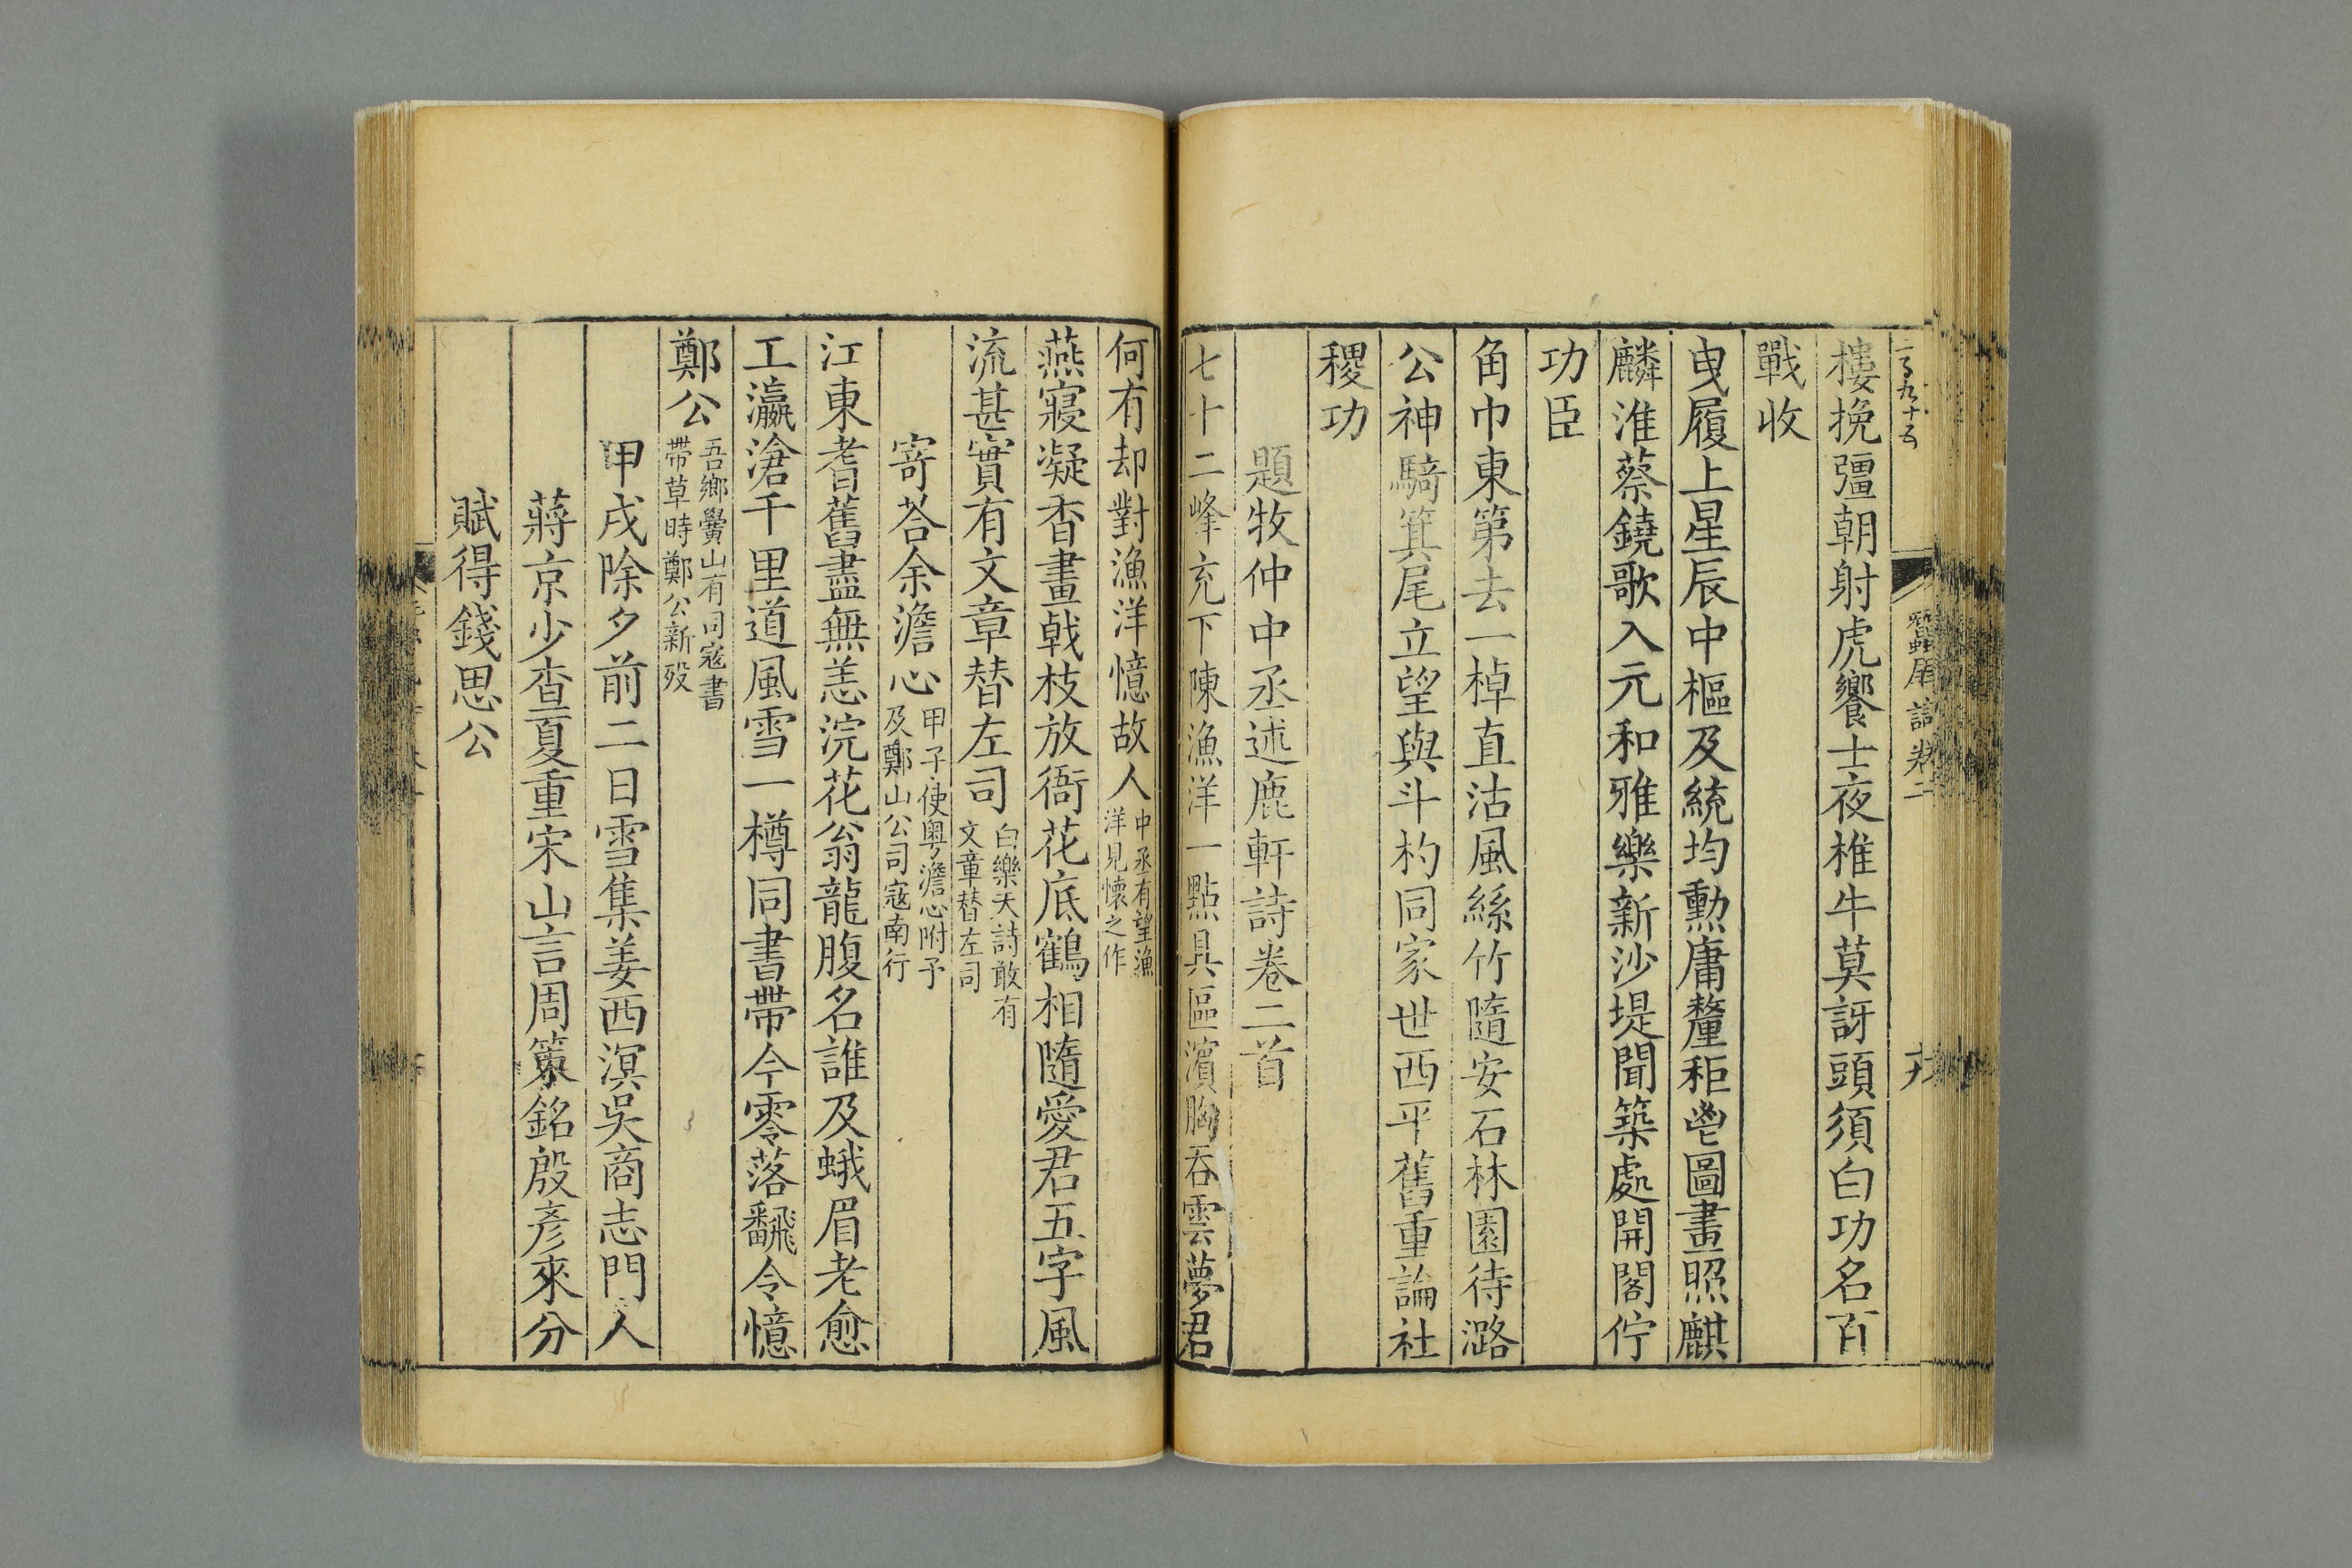 樓挽彊朝射虎饗士夜椎牛莫訝頭須白功名百
戰收
曳履上星辰中樞及統均勲庸釐秬鬯圖畫照麒
麟淮蔡鐃歌入元和雅樂新沙堤聞築處開閣佇
功臣
角巾東第去一棹直沽風絲竹隨安石林園待潞
公神騎箕尾立望與斗杓同家世西平舊重論社
稷功
題牧仲中丞述鹿軒詩卷二首
七十二峰充下陳漁洋一點具區濱胸吞雲夢君
何有却對漁洋憶故人中丞有望漁
洋見懷之作
燕寢凝香畫戟枝放衙花底鶴相隨愛君五字風
流甚實有文章替左司白樂天詩敢有
文章替左司
寄荅余澹心甲子使粤澹心附予
及鄭山公司寇南行
江東耆舊盡無恙浣花翁龍腹名誰及蛾眉老愈
工瀛滄千里道風雪一樽同書帶今零落飜令憶
鄭公吾鄉黌山有司寇書
帶草時鄭公新殁
甲戌除夕前二日雪集姜西溟吳商志門人
蔣京少查夏重宋山言周策銘殷彥來分
賦得錢思公